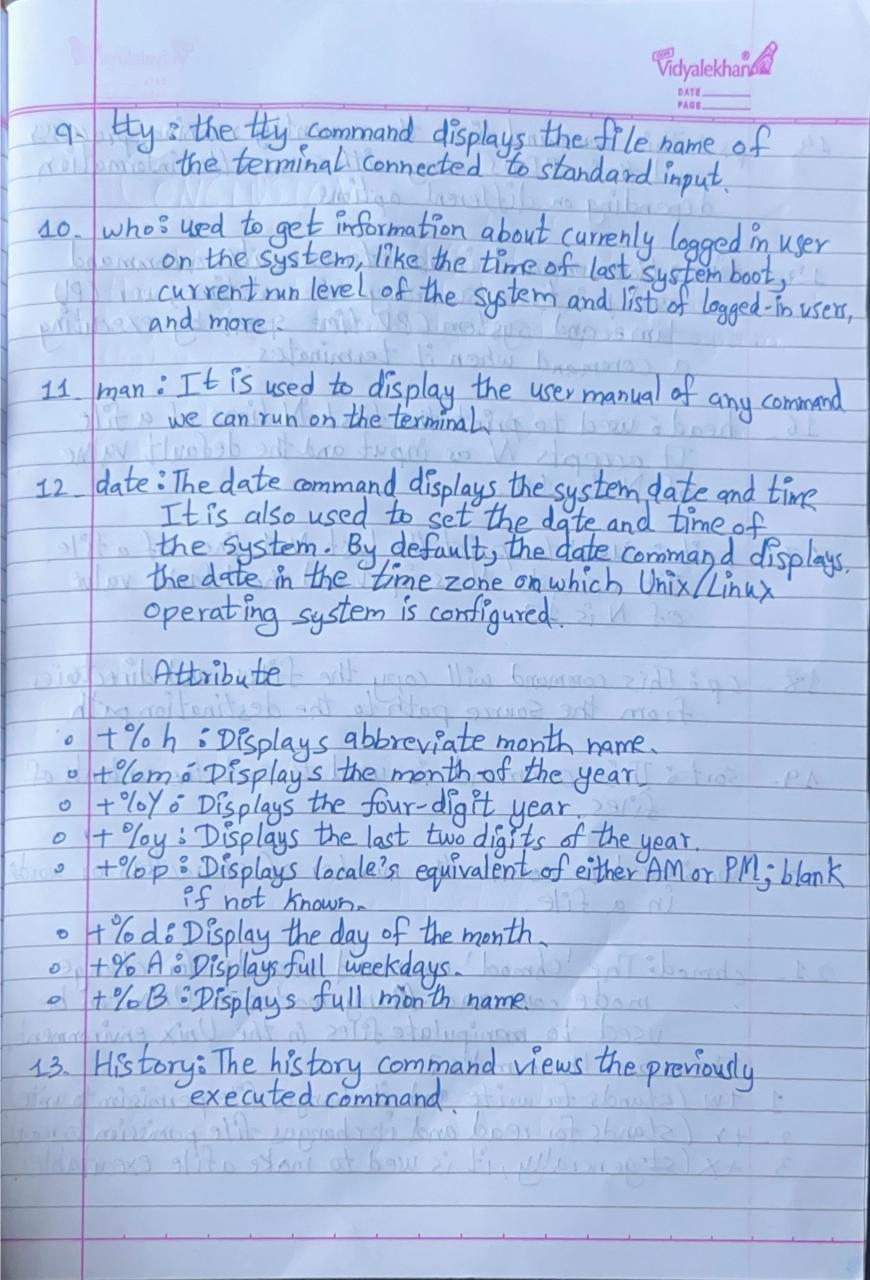 Vidyalekhan
DATE
PAGE
9. tty : the tty command displays the file name of
the terminal connected to standard input.
10. who : used to get information about currenly logged in user
on the system, like the time of last system boot,
current run level of the system and list of logged-in users,
and more.
11. man : It is used to display the user manual of any command
we can run on the terminal.
12. date : The date command displays the system date and time
It is also used to set the date and time of
the system. By default, the date command displays.
the date in the time zone on which Unix/Linux
operating system is configured.
Attribute
○ +%h : Displays abbreviate month name.
○ +%m : Displays the month of the year
○ +%Y : Displays the four-digit year.
○ +%y : Displays the last two digits of the year.
○ +%p : Displays locale's equivalent of either AM or PM; blank
if not known.
○ +%d : Display the day of the month.
○ +%A : Displays full weekdays.
○ +%B : Displays full month name.
13. History : The history command views the previously
executed command.